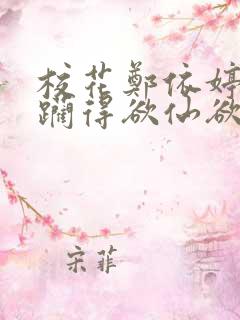 校花郑依婷
躏得欲仙欲
宋菲